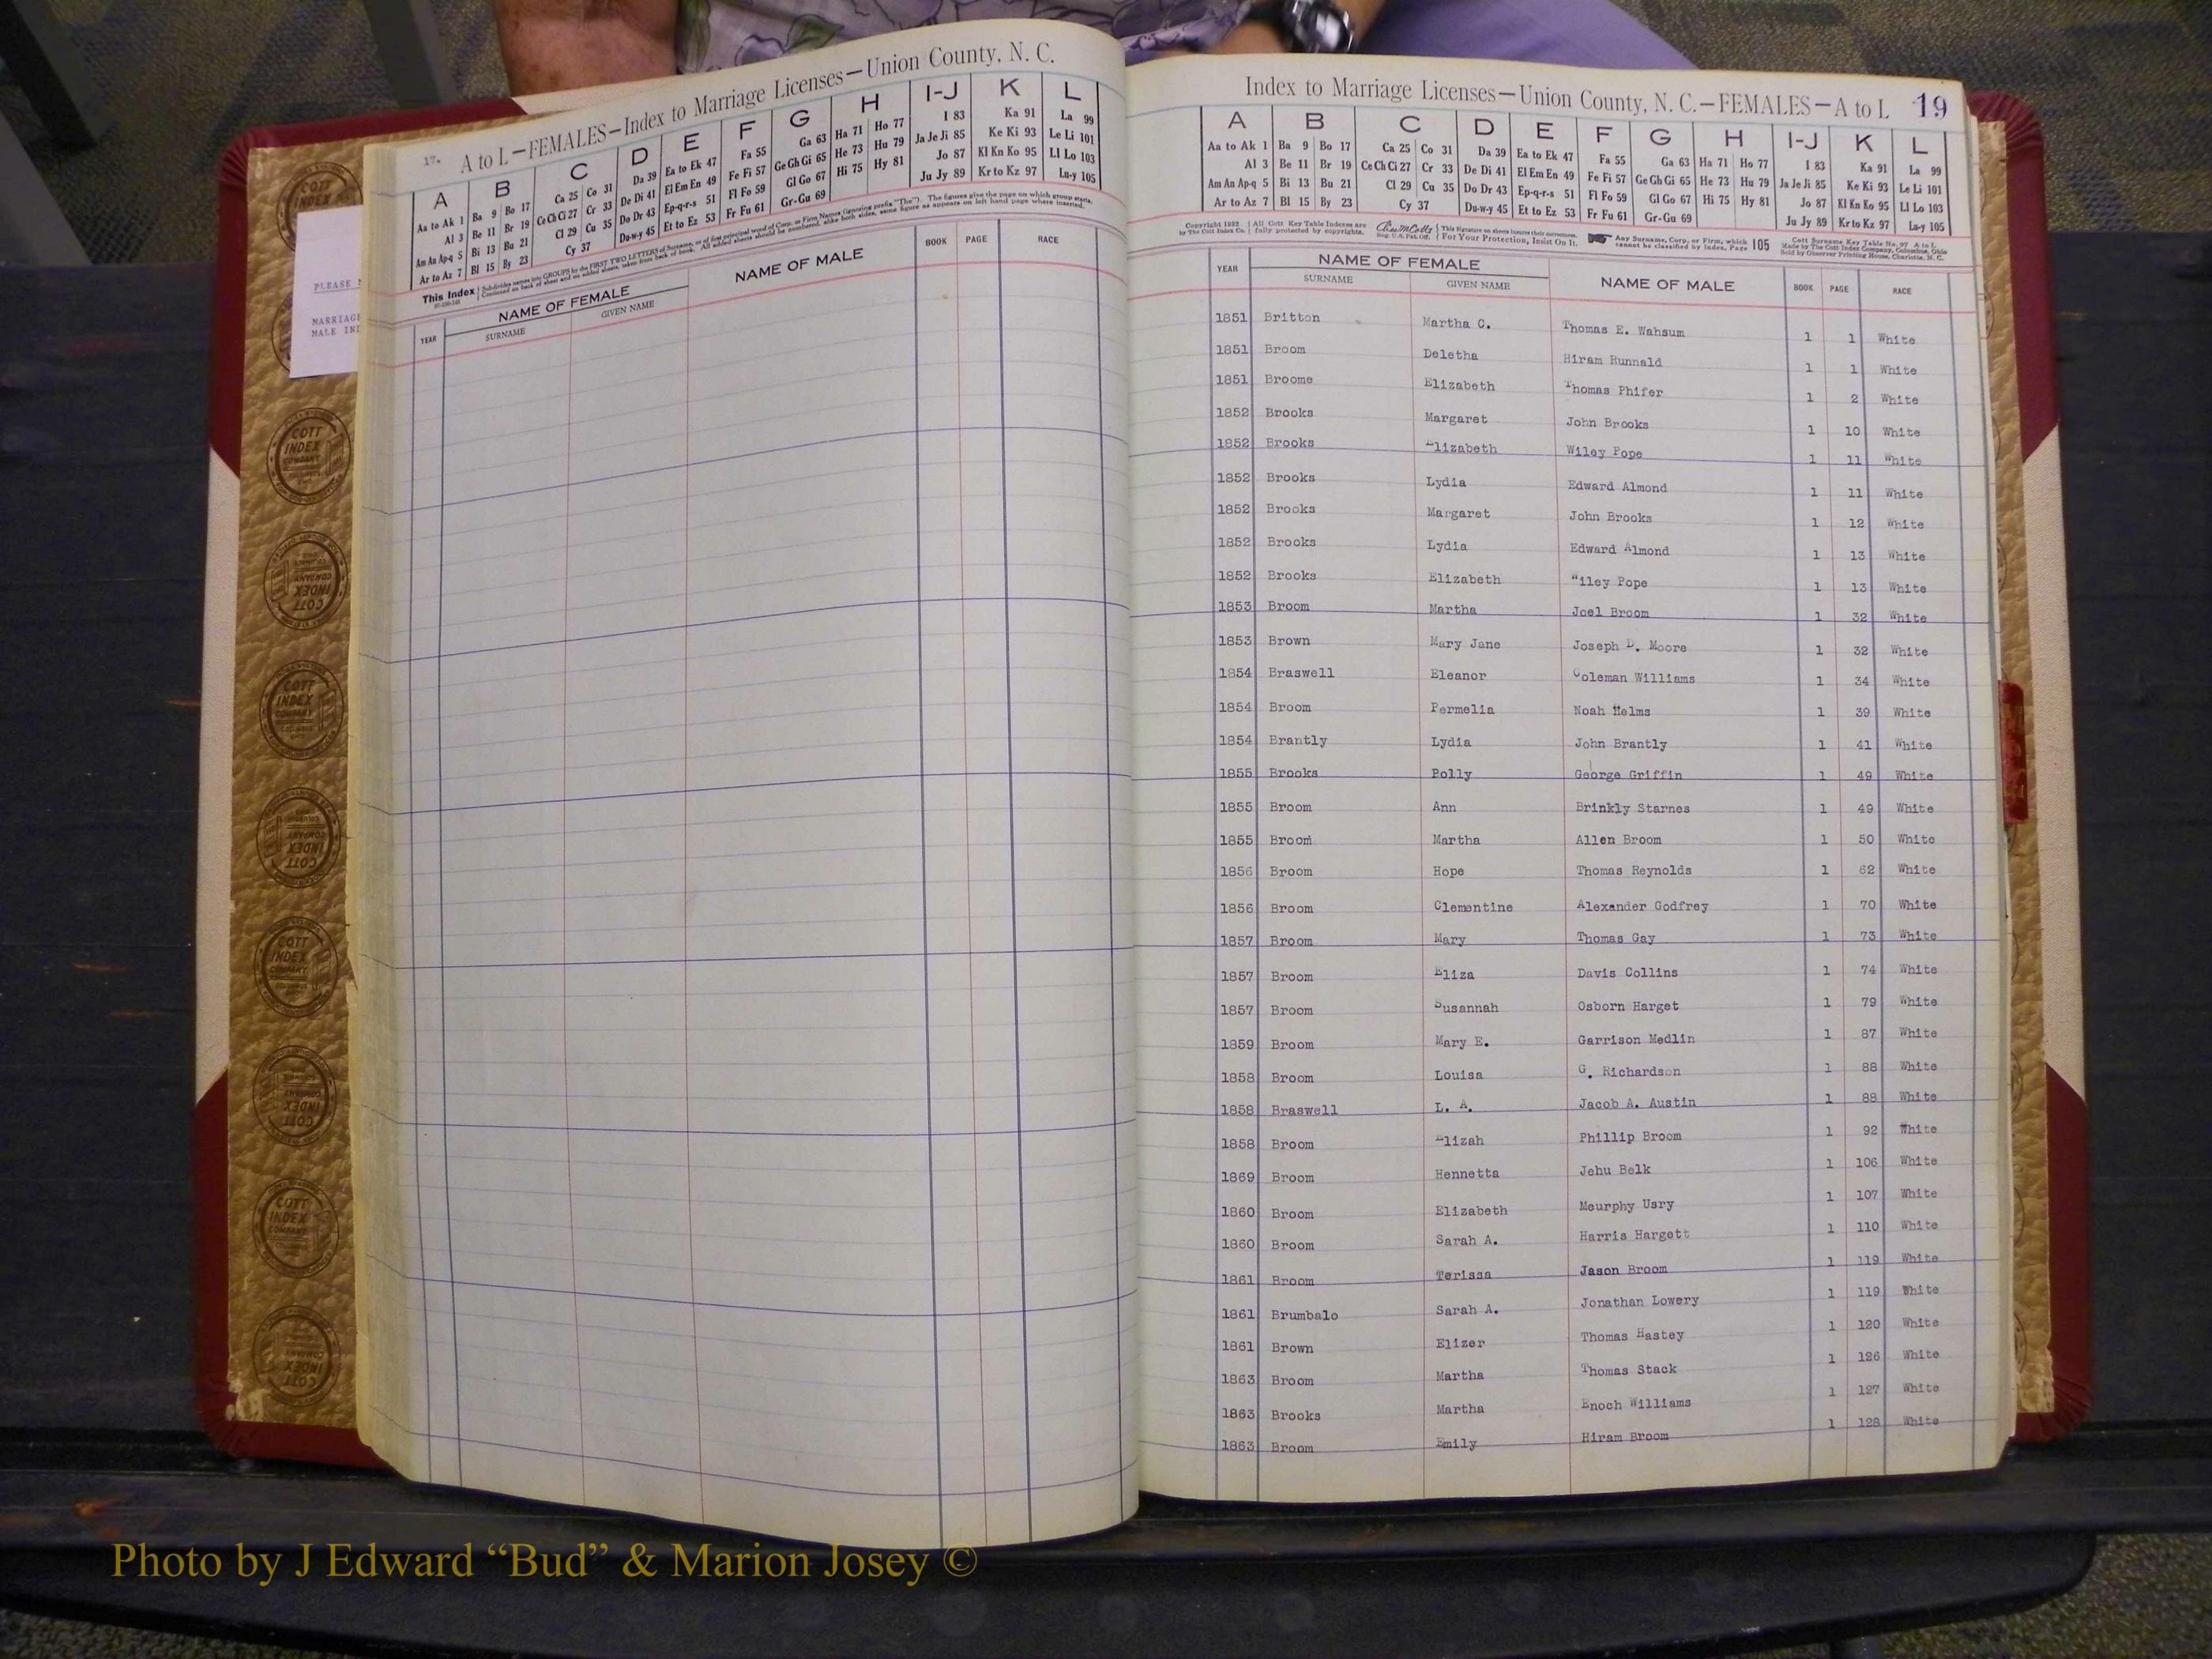 17. A to L—FEMALES—Index to Marriage Licenses—Union County, N. C.
A B C D E F G H I-J K L
Aa to Ak 1 Ba 9 Bo 17 Ca 25 Co 31 Da 39 Ea to Ek 47 Fa 55 Ga 63 Ha 71 Ho 77 I 83 Ka 91 La 99
Al 3 Be 11 Br 19 Ce Ch Ci 27 Cr 33 De Di 41 El Em En 49 Fe Fi 57 Ge Gh Gi 65 He 73 Hu 79 Ja Je Ji 85 Ke Ki 93 Le Li 101
Am An Ap-q 5 Bi 13 Bu 21 Cl 29 Cu 35 Do Dr 43 Ep-q-r-s 51 Fl Fo 59 Gl Go 67 Hi 75 Hy 81 Jo 87 Kl Kn Ko 95 Ll Lo 103
Ar to Az 7 Bl 15 By 23 Cy 37 Du-w-y 45 Et to Ez 53 Fr Fu 61 Gr-Gu 69 Ju Jy 89 Kr to Kz 97 Lu-y 105
This Index Subdivides names into GROUPS by the FIRST TWO LETTERS of Surname, or of first principal word of Corp. or Firm Names (ignoring prefix "The"). The figures give the page on which group starts.
Continued on back of sheet and on added sheets, taken from back of book. All added sheets should be numbered, alike both sides, same figure as appears on left hand page where inserted.
YEAR NAME OF FEMALE NAME OF MALE BOOK PAGE RACE
SURNAME GIVEN NAME
PLEASE
MARRIAGE
MALE IND
COTT INDEX COMPANY
Index to Marriage Licenses—Union County, N. C.—FEMALES—A to L 19
A B C D E F G H I-J K L
Aa to Ak 1 Ba 9 Bo 17 Ca 25 Co 31 Da 39 Ea to Ek 47 Fa 55 Ga 63 Ha 71 Ho 77 I 83 Ka 91 La 99
Al 3 Be 11 Br 19 Ce Ch Ci 27 Cr 33 De Di 41 El Em En 49 Fe Fi 57 Ge Gh Gi 65 He 73 Hu 79 Ja Je Ji 85 Ke Ki 93 Le Li 101
Am An Ap-q 5 Bi 13 Bu 21 Cl 29 Cu 35 Do Dr 43 Ep-q-r-s 51 Fl Fo 59 Gl Go 67 Hi 75 Hy 81 Jo 87 Kl Kn Ko 95 Ll Lo 103
Ar to Az 7 Bl 15 By 23 Cy 37 Du-w-y 45 Et to Ez 53 Fr Fu 61 Gr-Gu 69 Ju Jy 89 Kr to Kz 97 Lu-y 105
Copyright 1922 All Cott Key Table Indexes are This Signature on sheets insures their correctness. Any Surname, Corp. or Firm, which 105 Cott Surname Key Table No. 97 A to L
by The Cott Index Co. fully protected by copyrights. Reg. U.S. Pat. Off. For Your Protection, Insist On It. cannot be classified by Index, Page Made by The Cott Index Company, Columbus, Ohio
Sold by Observer Printing House, Charlotte, N. C.
YEAR NAME OF FEMALE NAME OF MALE BOOK PAGE RACE
SURNAME GIVEN NAME
1851 Britton Martha C. Thomas E. Wahsum 1 1 White
1851 Broom Deletha Hiram Runnald 1 1 White
1851 Broome Elizabeth Thomas Phifer 1 2 White
1852 Brooks Margaret John Brooks 1 10 White
1852 Brooks Elizabeth Wiley Pope 1 11 White
1852 Brooks Lydia Edward Almond 1 11 White
1852 Brooks Margaret John Brooks 1 12 White
1852 Brooks Lydia Edward Almond 1 13 White
1852 Brooks Elizabeth Wiley Pope 1 13 White
1853 Broom Martha Joel Broom 1 32 White
1853 Brown Mary Jane Joseph D. Moore 1 32 White
1854 Braswell Eleanor Coleman Williams 1 34 White
1854 Broom Permelia Noah Helms 1 39 White
1854 Brantly Lydia John Brantly 1 41 White
1855 Brooks Polly George Griffin 1 49 White
1855 Broom Ann Brinkly Starnes 1 49 White
1855 Broom Martha Allen Broom 1 50 White
1856 Broom Hope Thomas Reynolds 1 62 White
1856 Broom Clementine Alexander Godfrey 1 70 White
1857 Broom Mary Thomas Gay 1 73 White
1857 Broom Eliza Davis Collins 1 74 White
1857 Broom Susannah Osborn Harget 1 79 White
1859 Broom Mary E. Garrison Medlin 1 87 White
1858 Broom Louisa G. Richardson 1 88 White
1858 Braswell L. A. Jacob A. Austin 1 88 White
1858 Broom Elizah Phillip Broom 1 92 White
1869 Broom Hennetta Jehu Belk 1 106 White
1860 Broom Elizabeth Meurphy Usry 1 107 White
1860 Broom Sarah A. Harris Hargett 1 110 White
1861 Broom Terissa Jason Broom 1 119 White
1861 Brumbalo Sarah A. Jonathan Lowery 1 119 White
1861 Brown Elizer Thomas Hastey 1 120 White
1863 Broom Martha Thomas Stack 1 126 White
1863 Brooks Martha Enoch Williams 1 127 White
1863 Broom Emily Hiram Broom 1 128 White
Photo by J Edward “Bud” & Marion Josey ©